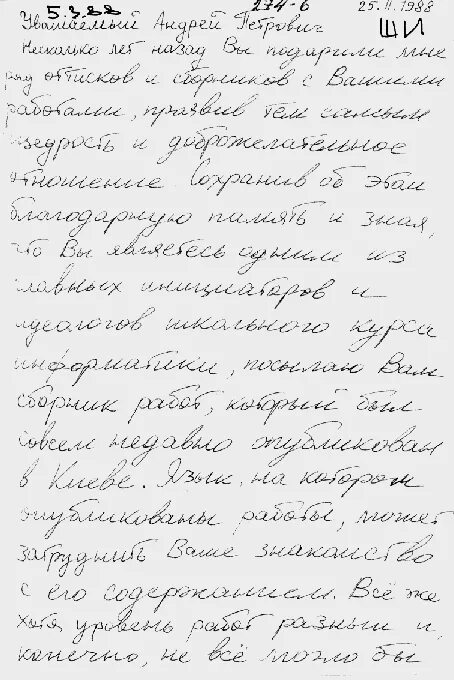 5.3.88 274-6 25.II.1988
Уважаемый Андрей Петрович ШИ
Несколько лет назад Вы подарили мне
ряд оттисков и сборников с Вашими
работами, проявив тем самым
щедрость и доброжелательное
отношение. Сохранив об этом
благодарную память и зная,
что Вы являетесь одним из
главных инициаторов и
идеологов школьного курса
информатики, посылаю Вам
сборник работ, который был
совсем недавно опубликован
в Киеве. Язык, на котором
опубликованы работы, может
затруднить Ваше знакомство
с его содержанием. Всё же
хотя уровень работ разный и,
конечно, не всё могло бы